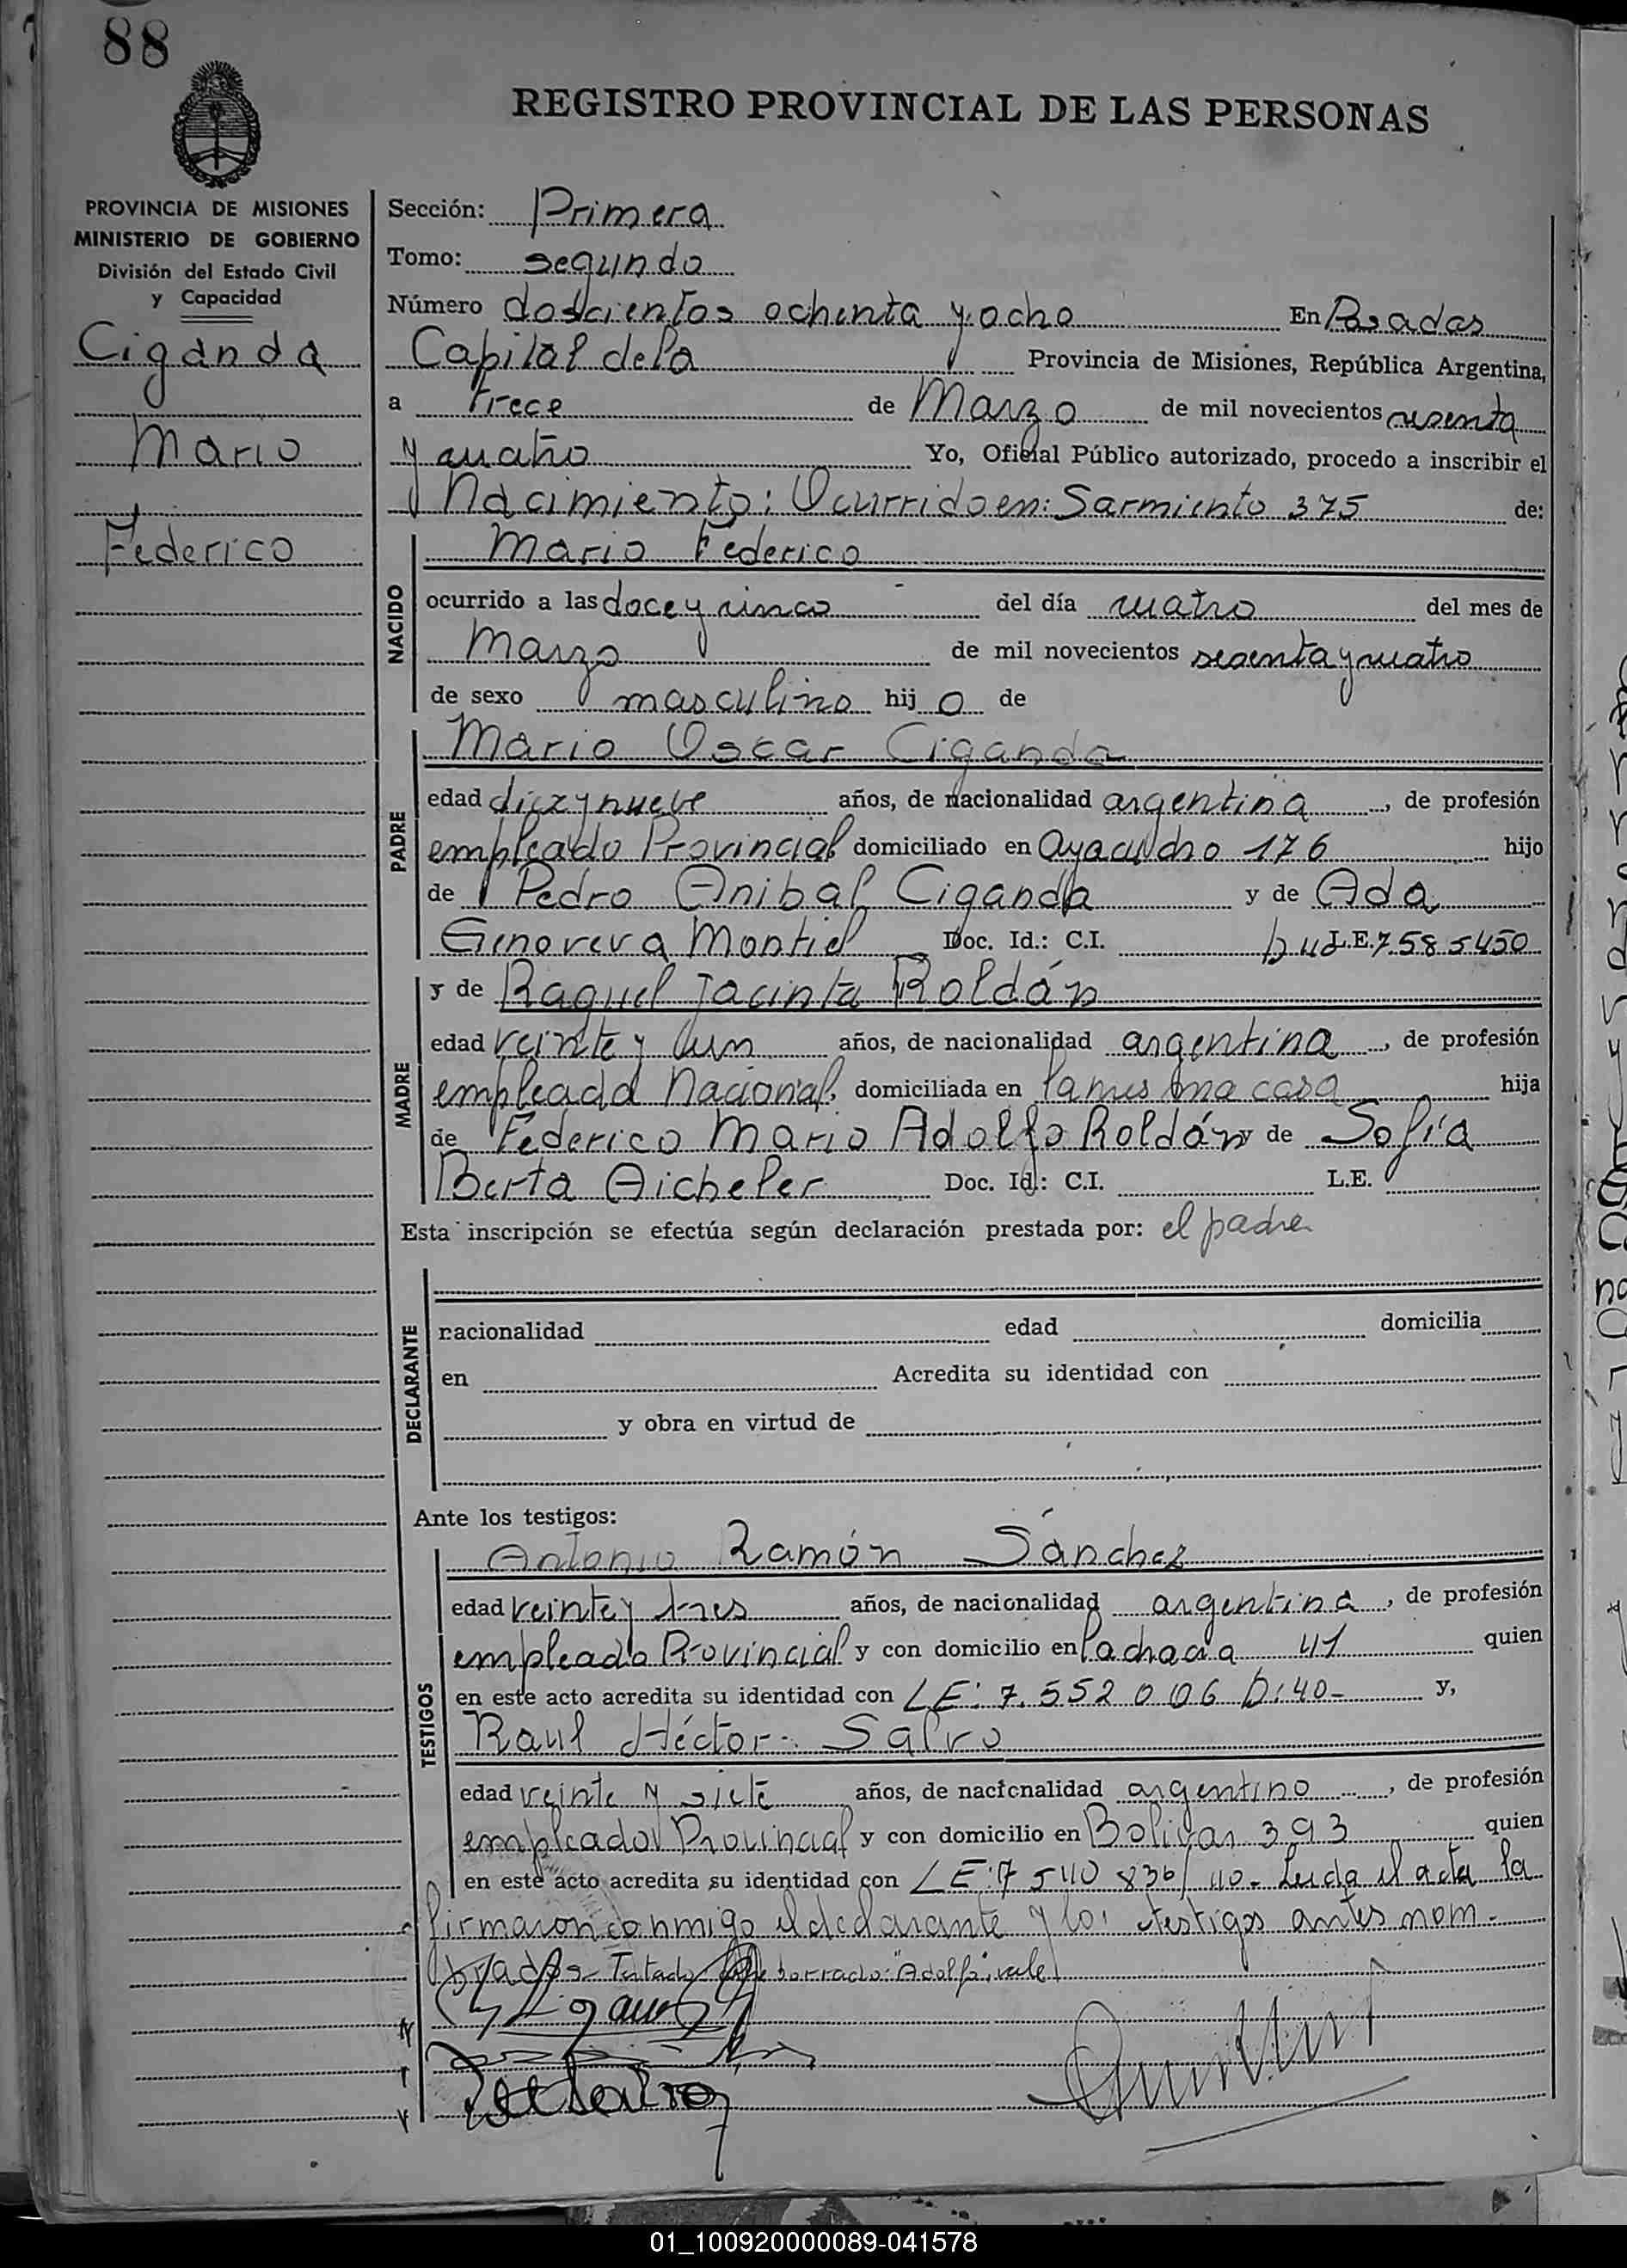 88
REGISTRO PROVINCIAL DE LAS PERSONAS
PROVINCIA DE MISIONES
MINISTERIO DE GOBIERNO
División del Estado Civil
y Capacidad
Ciganda
Mario
Federico
Sección: Primera
Tomo: segundo
Número doscientos ochenta y ocho En Posadas
Capital de la Provincia de Misiones, República Argentina,
a trece de Marzo de mil novecientos sesenta
y cuatro Yo, Oficial Público autorizado, procedo a inscribir el
Nacimiento: Ocurrido en: Sarmiento 375 de:
NACIDO
Mario Federico
ocurrido a las doce y cinco del día cuatro del mes de
Marzo de mil novecientos sesenta y cuatro
de sexo masculino hij o de
PADRE
Mario Oscar Ciganda
edad diez y nueve años, de nacionalidad argentina, de profesión
empleado Provincial domiciliado en Ayacucho 176 hijo
de Pedro Anibal Ciganda y de Ada
Genoveva Montiel Doc. Id.: C.I. L.E. 7585450
MADRE
y de Raquel Jacinta Roldán
edad veinte y un años, de nacionalidad argentina, de profesión
empleada Nacional, domiciliada en la misma casa hija
de Federico Mario Adolfo Roldán y de Sofía
Berta Aicheler Doc. Id.: C.I. L.E.
Esta inscripción se efectúa según declaración prestada por: el padre
DECLARANTE
nacionalidad edad domicilia
en Acredita su identidad con
y obra en virtud de
Ante los testigos:
TESTIGOS
Antonio Ramón Sánchez
edad veinte y tres años, de nacionalidad argentina, de profesión
empleado Provincial y con domicilio en la chacra 41 quien
en este acto acredita su identidad con LE: 7.552006 D:40- y,
Raul Héctor Salvo
edad veinte y siete años, de nacionalidad argentino, de profesión
empleado Provincial y con domicilio en Bolivar 393 quien
en este acto acredita su identidad con LE: 7540836/40. Leida el acta la
firmaron conmigo el declarante y los testigos antes nom-
brados- Testado borrado: "Adolfo", vale
01_100920000089-041578